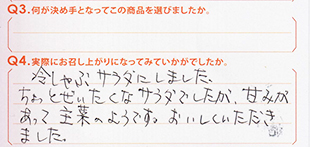 Q3.何が決め手となってこの商品を選びましたか。
Q4.実際にお召し上がりになってみていかがでしたか。
冷しゃぶサラダにしました。
ちょっとぜいたくなサラダでしたが、甘みが
あって主菜のようです。おいしくいただき
ました。